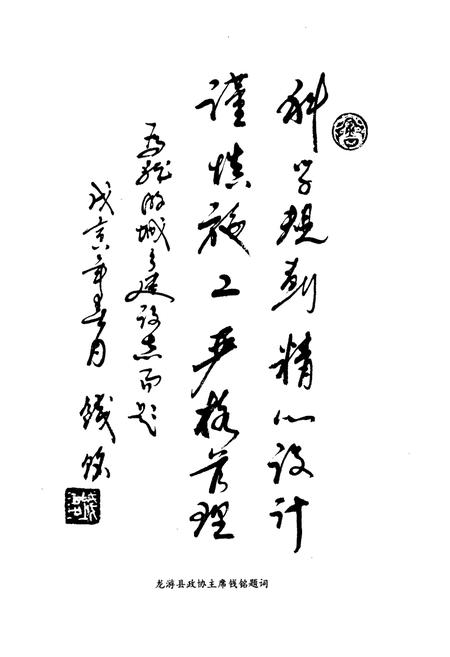 科学规划精心设计
谨慎施工严格管理
为龙游城乡建设志而题
戊寅年春月 钱铭
龙游县政协主席钱铭题词